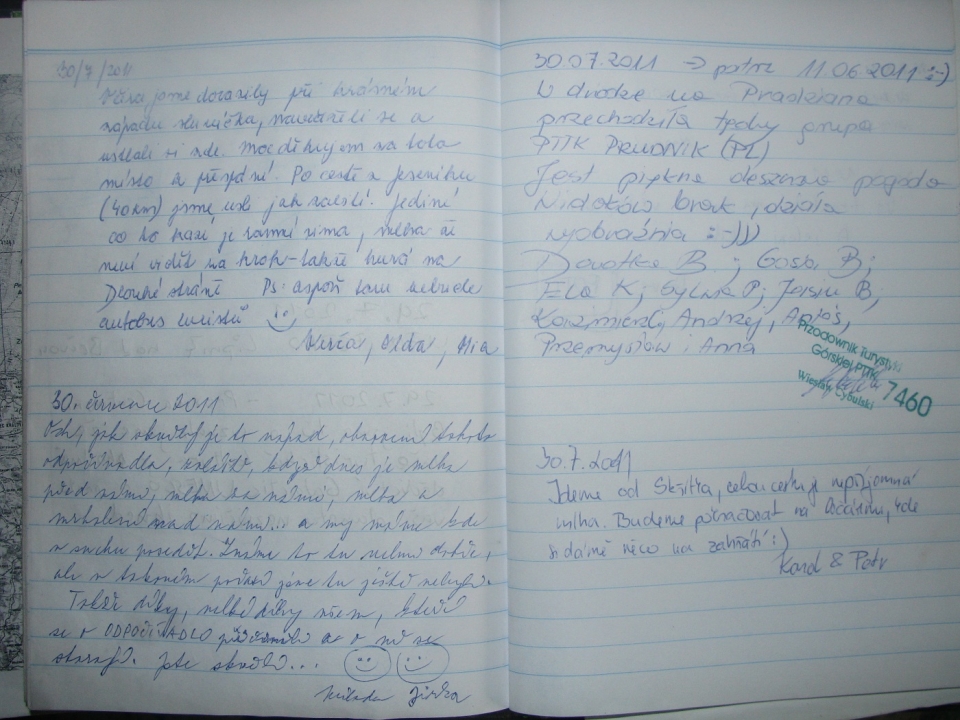 30/7/2011
Včera jsme dorazily při krásném
západu sluníčka, navečeřeli se a
ustlali si zde. Moc děkujem za toto
místo a přespání. Po cestě z Jeseníku
(40km) jsme usli jak zabití. Jediné
co to kazí je ranní zima, mlha až
není vidět na krok - takže hurá na
Dlouhé stráně Ps: aspoň tam nebude
autobus turistů
Verča, Olda, Mia
30. července 2011
Och, jak skvělý je to nápad,
odpočívadla, zvláště, když dnes je mlha
před námi, mlha za námi, mlha a
mrholení nad námi... a my máme kde
v suchu posedět. Známe to tu velmi dobře,
ale v takovém počasí jsme tu ještě nebyli.
Takže díky, velké díky všem, kteří
se o ODPOČÍVADLO a o ně se
starají. Jste skvělí...
Milada Jirka
30.07.2011 → patrz 11.06.2011 :-)
W drodze na Pradziada
przechodziła tędy grupa
PTTK PRUDNIK (PL)
Jest piękna deszczowa pogoda
Widoków brak, działa
wyobraźnia :-)))
Dorotka B.; Gosia B;
Ela K; Sylwia P; Jasiu B;
Kazimierz, Andrzej,
Przemysław i Anna
Przodownik Turystyki
Górskiej PTTK
Wiesław Cybulski 7460
30.7.2011
Jdeme od Skřítka, celou cestu je nepříjemná
mlha. Budeme pokračovat na Ovčárnu, kde
si dáme něco na zahřátí :)
& Petr